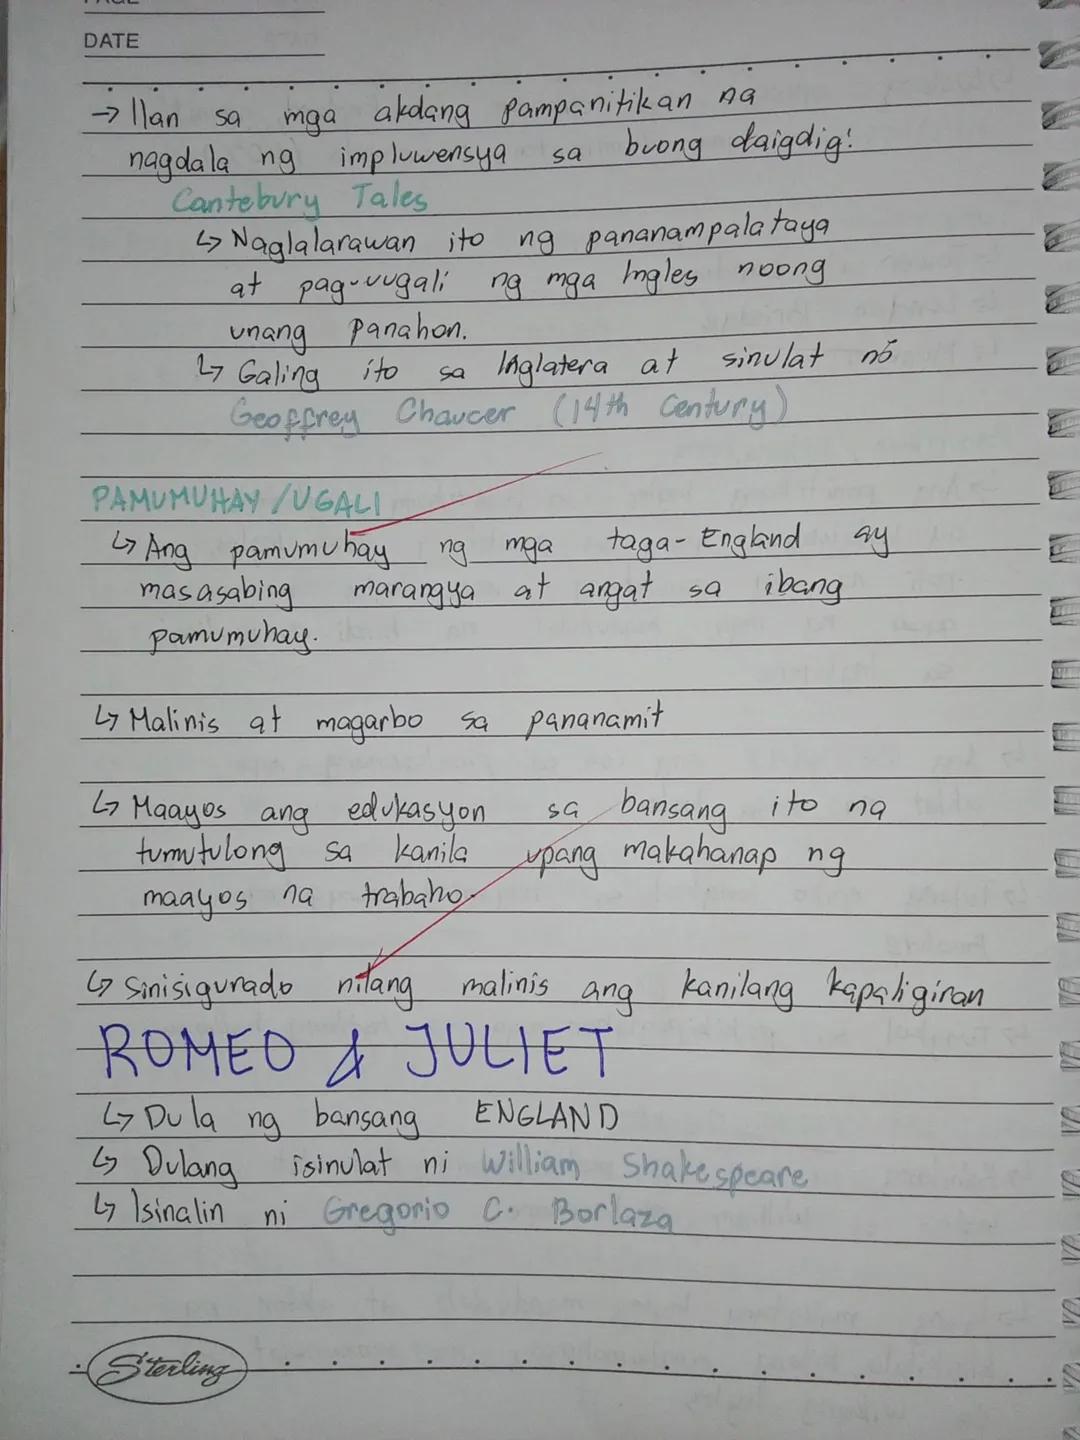 PAGE
DATE
→ Ilan sa mga akdang pampanitikan na
nagdala ng impluwensya sa buong daigdig:
Cantebury Tales
↳ Naglalarawan ito ng pananampalataya
at pag-uugali ng mga Ingles noong
unang panahon.
↳ Galing ito sa Inglatera at sinulat no
Geoffrey Chaucer (14th Century)
PAMUMUHAY /UGALI
↳ Ang pamumuhay ng mga taga-England ay
masasabing marangya at angat sa ibang
pamumuhay.
↳ Malinis at magarbo sa pananamit
↳ Maayos ang edukasyon sa bansang ito na
tumutulong sa kanila upang makahanap ng
maayos na trabaho.
↳ Sinisigurado nilang malinis ang kanilang kapaligiran
ROMEO & JULIET
↳ Dula ng bansang ENGLAND
↳ Dulang isinulat ni William Shakespeare
↳ Isinalin ni Gregorio C. Borlaza
Sterling